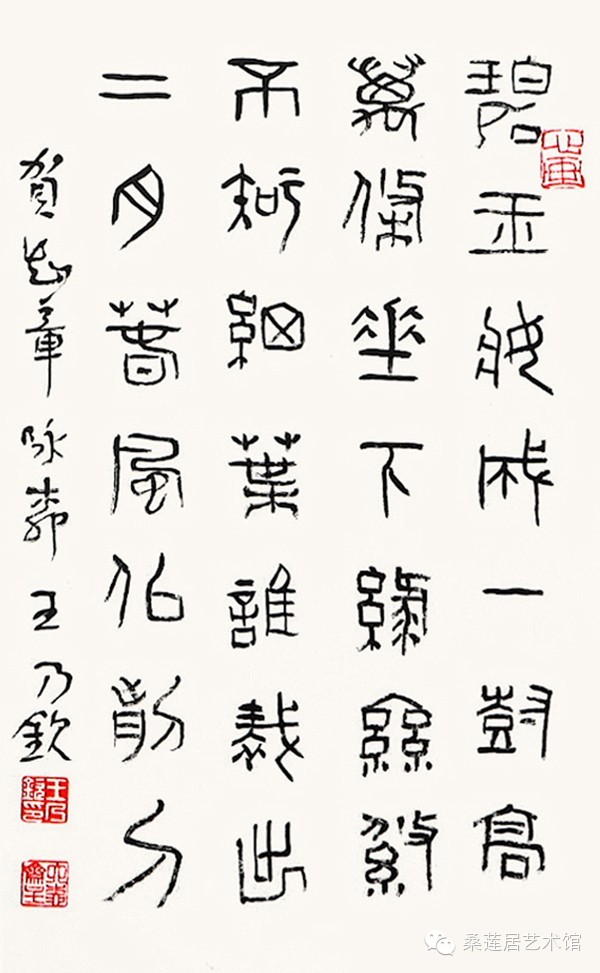 碧玉妝成一尌高
萬條垂下綠絲絛
不知細葉誰裁出
二月春風似剪刀
賀知章詠柳 王乃欽
王乃欽印
桑莲居艺术馆